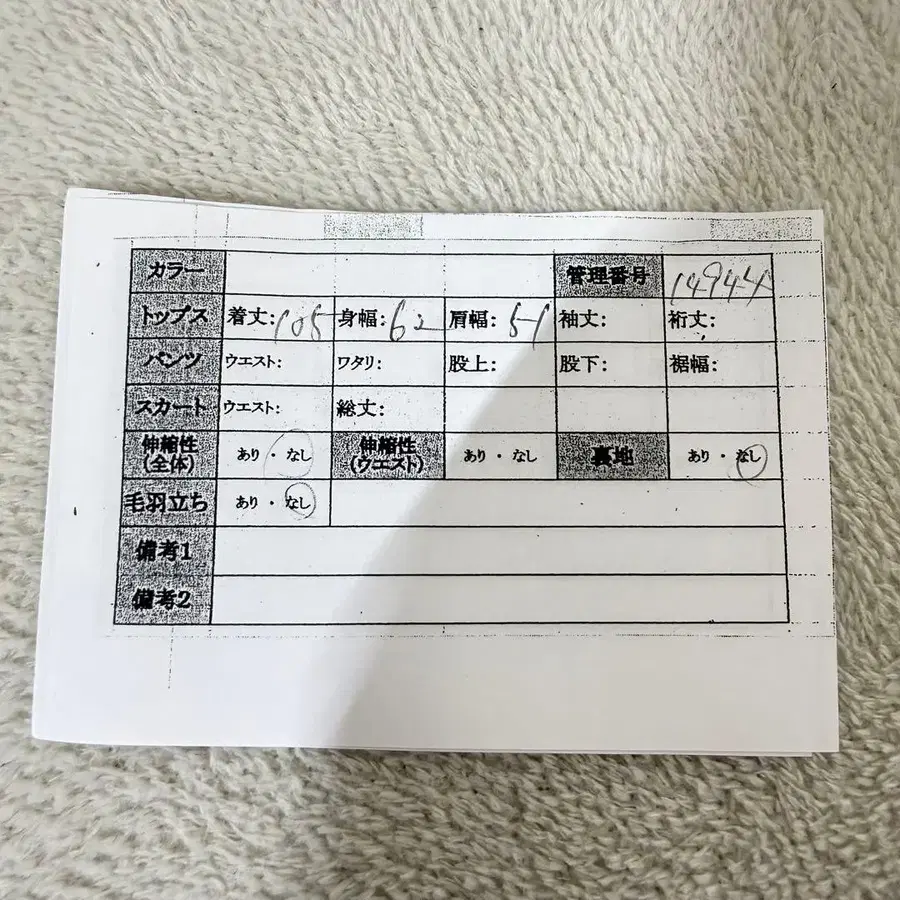 カラー 管理番号 14944
トップス 着丈:105 身幅:62 肩幅:51 袖丈: 裄丈:
パンツ ウエスト: ワタリ: 股上: 股下: 裾幅:
スカート ウエスト: 総丈:
伸縮性(全体) あり・なし 伸縮性(ウエスト) あり・なし 裏地 あり・なし
毛羽立ち あり・なし
備考1
備考2